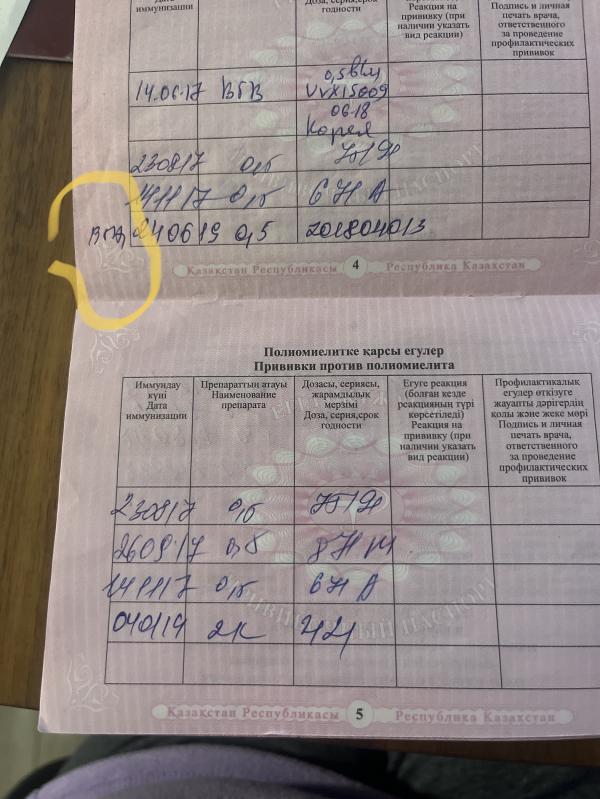 Дата
иммунизации
Доза, серия,срок
годности
Реакция на
прививку (при
наличии указать
вид реакции)
Подпись и личная
печать врача,
ответственного
за проведение
профилактических
прививок
14.06.17 ВГВ 0,5 в/м
UVX15009
06.18
Корея
230817 0,5
141117 0,5 6
ВГВ 240619 0,5 201804013
Қазақстан Республикасы 4 Республика Казахстан
Полиомиелитке қарсы егулер
Прививки против полиомиелита
Иммундау
күні
Дата
иммунизации
Препараттың атауы
Наименование
препарата
Дозасы, сериясы,
жарамдылық
мерзімі
Доза, серия,срок
годности
Егуге реакция
(болған кезде
реакцияның түрі
көрсетіледі)
Реакция на
прививку (при
наличии указать
вид реакции)
Профилактикалық
егулер өткізуге
жауапты дәрігердің
қолы және жеке мөрі
Подпись и личная
печать врача,
ответственного
за проведение
профилактических
прививок
230817 0,5
260917 0,5
141117 0,5 6
2к
Қазақстан Республикасы 5 Республика Казахстан